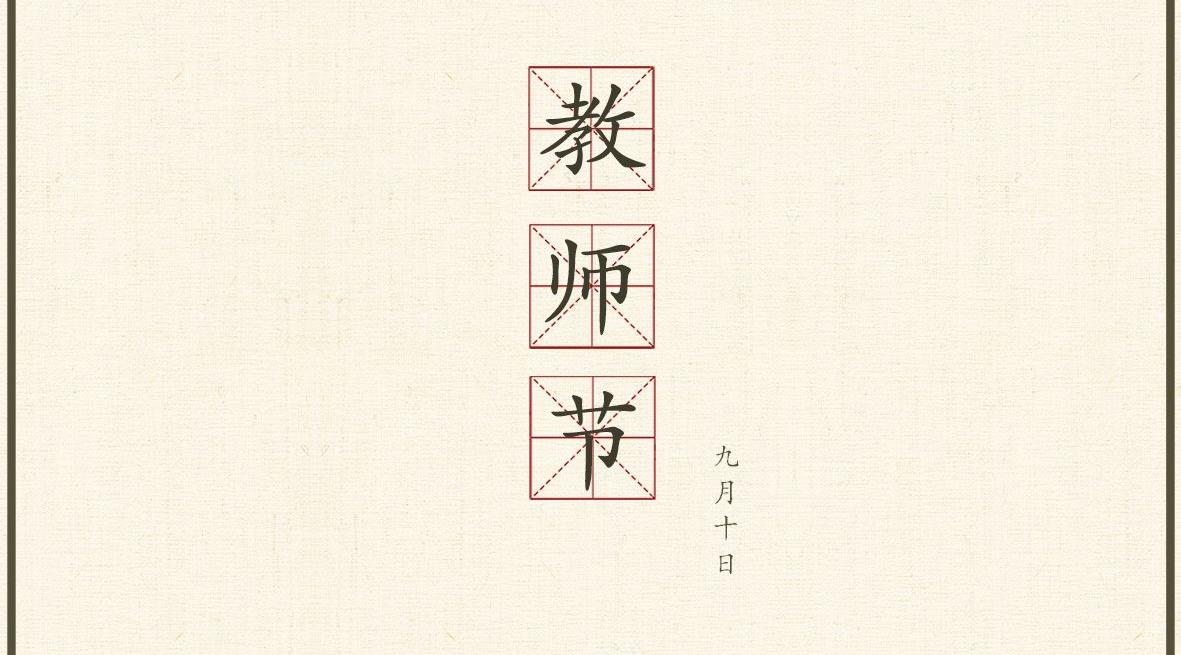 教师节
九月十日